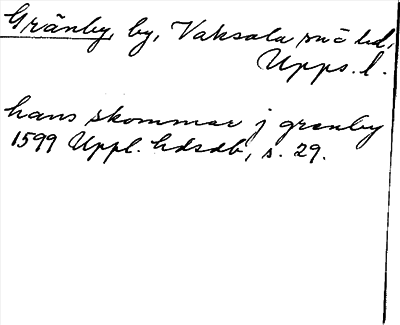 Gränby, by, Vaksala sn o hd,
Upps. l.
hans skommar j granby
1599 Uppl. hdsdb, s. 29.